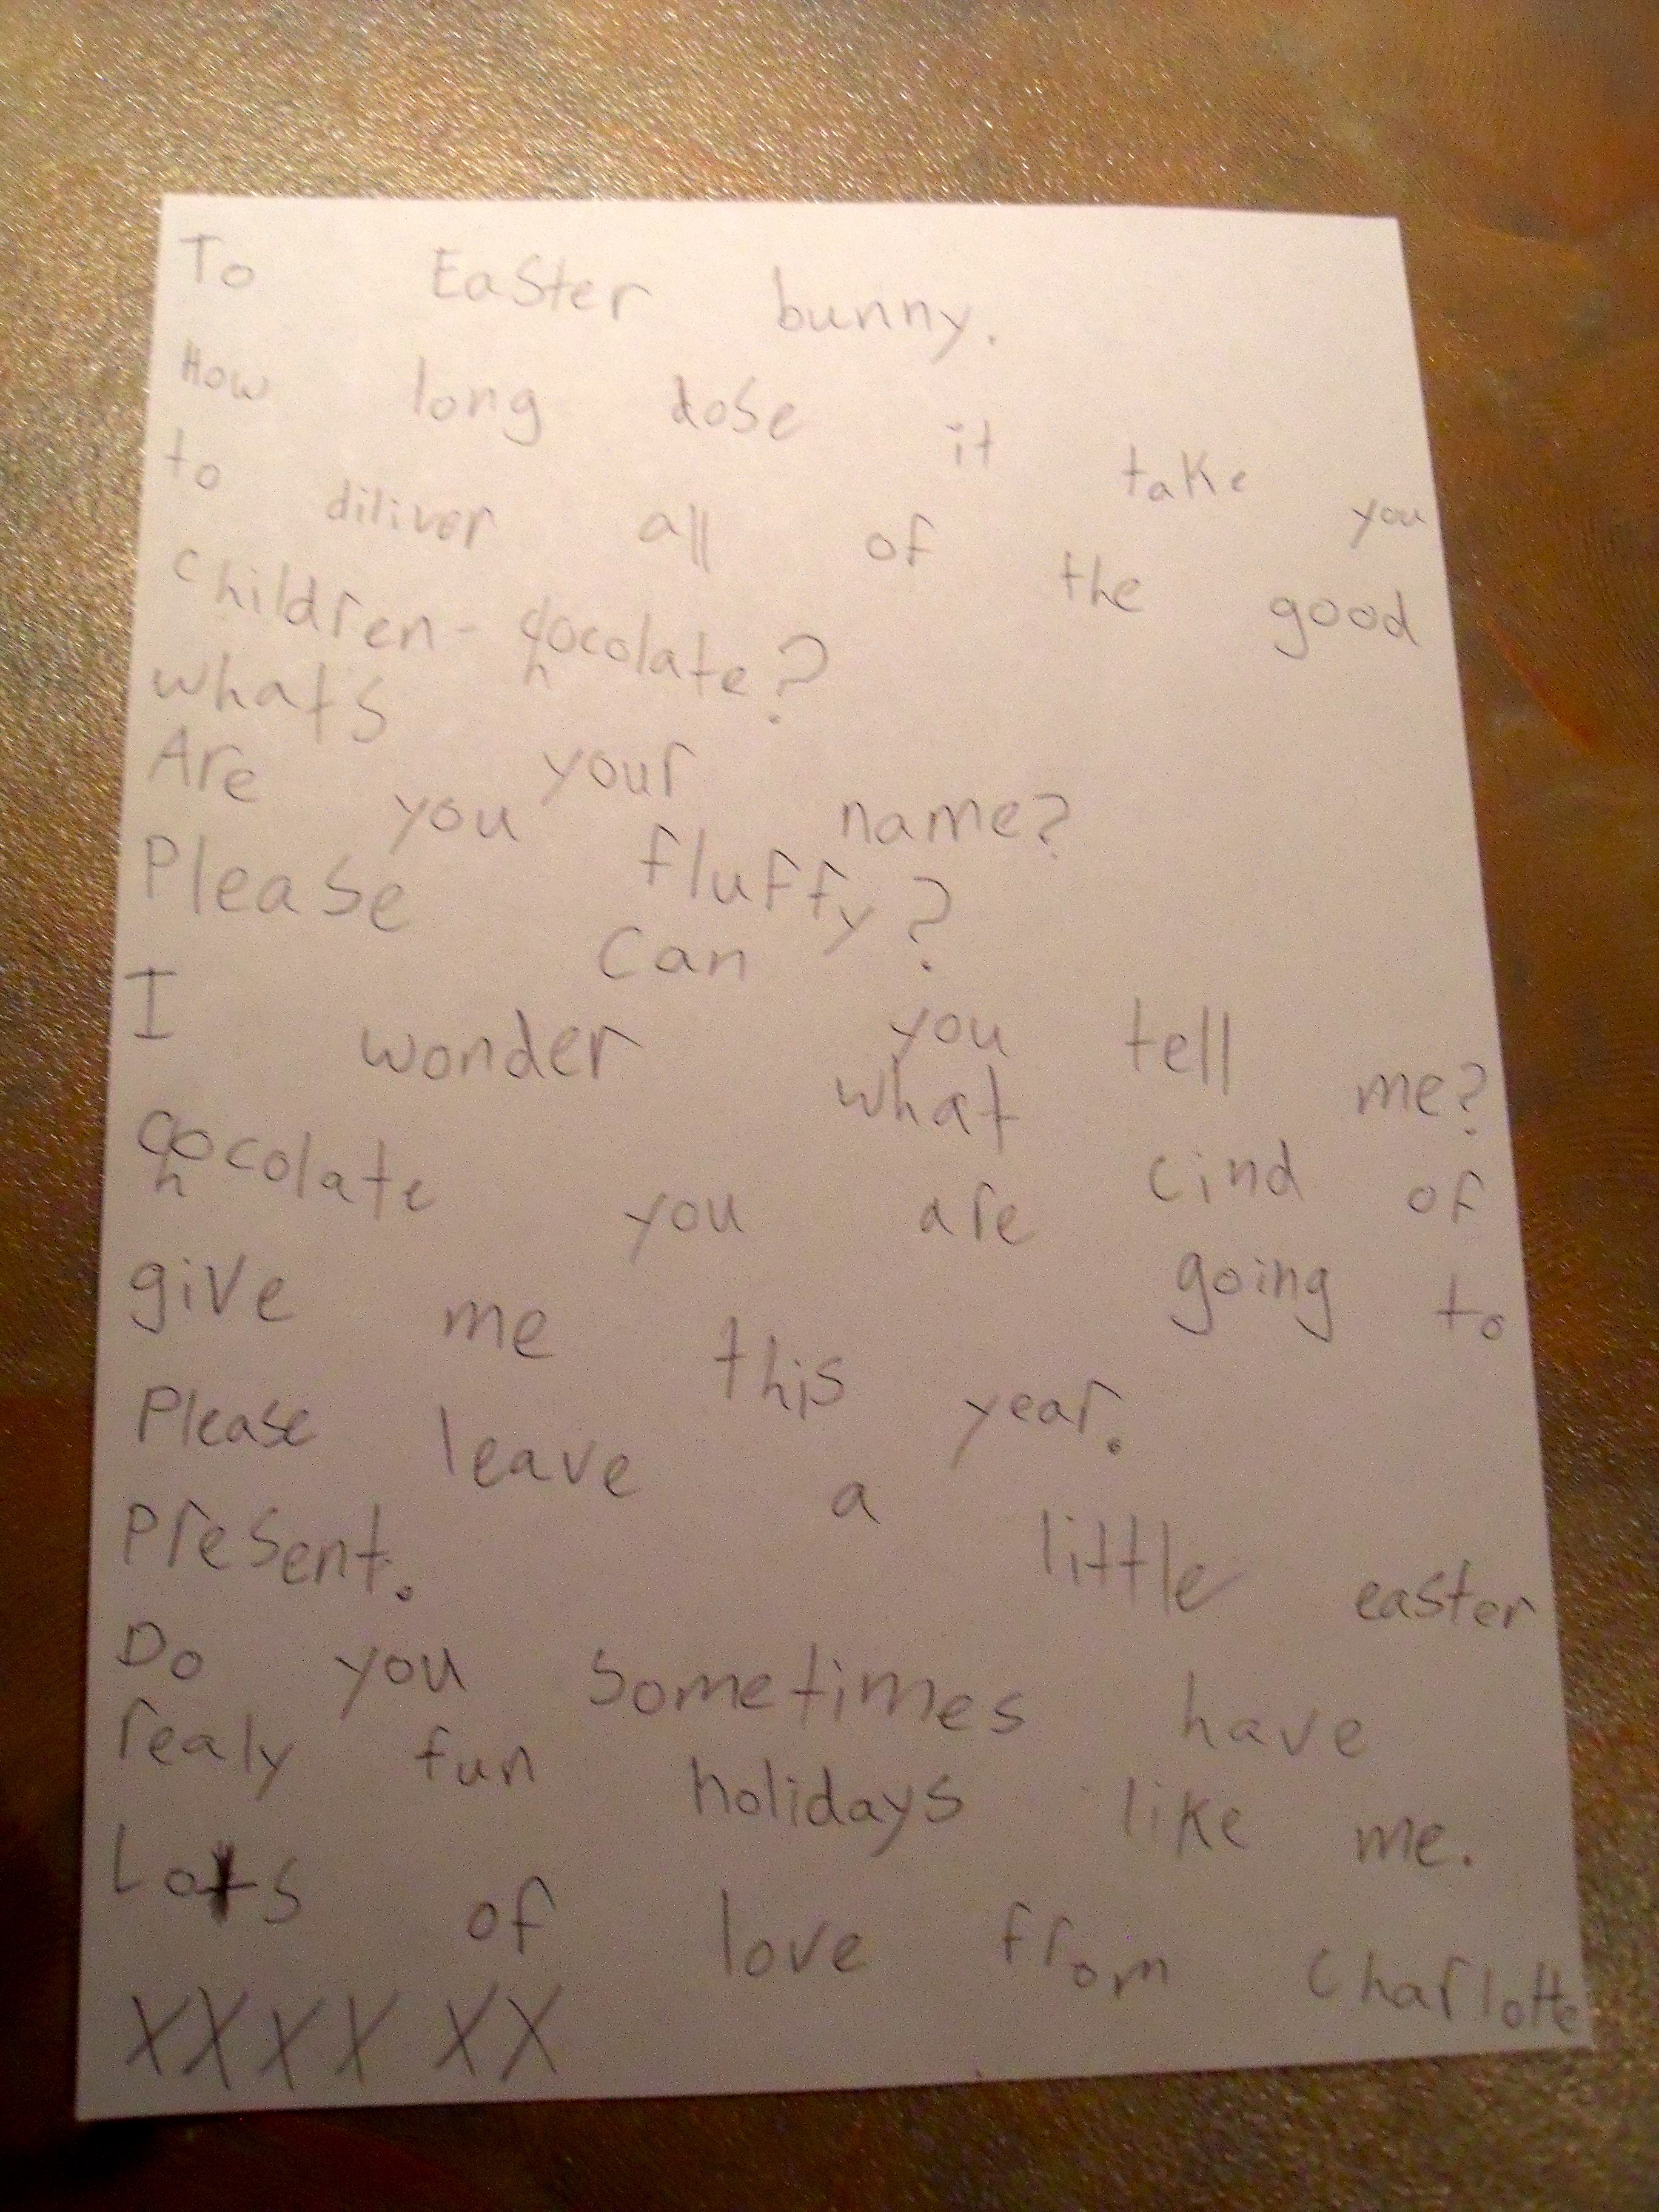 To Easter bunny.
How long dose it take you
to diliver all of the good
children - chocolate?
whats your name?
Are you fluffy?
Please can you tell me?
I wonder what cind of
chocolate you are going to
give me this year.
Please leave a little easter
present.
Do you sometimes have
realy fun holidays like me.
Lots of love from Charlotte
XXXX XX